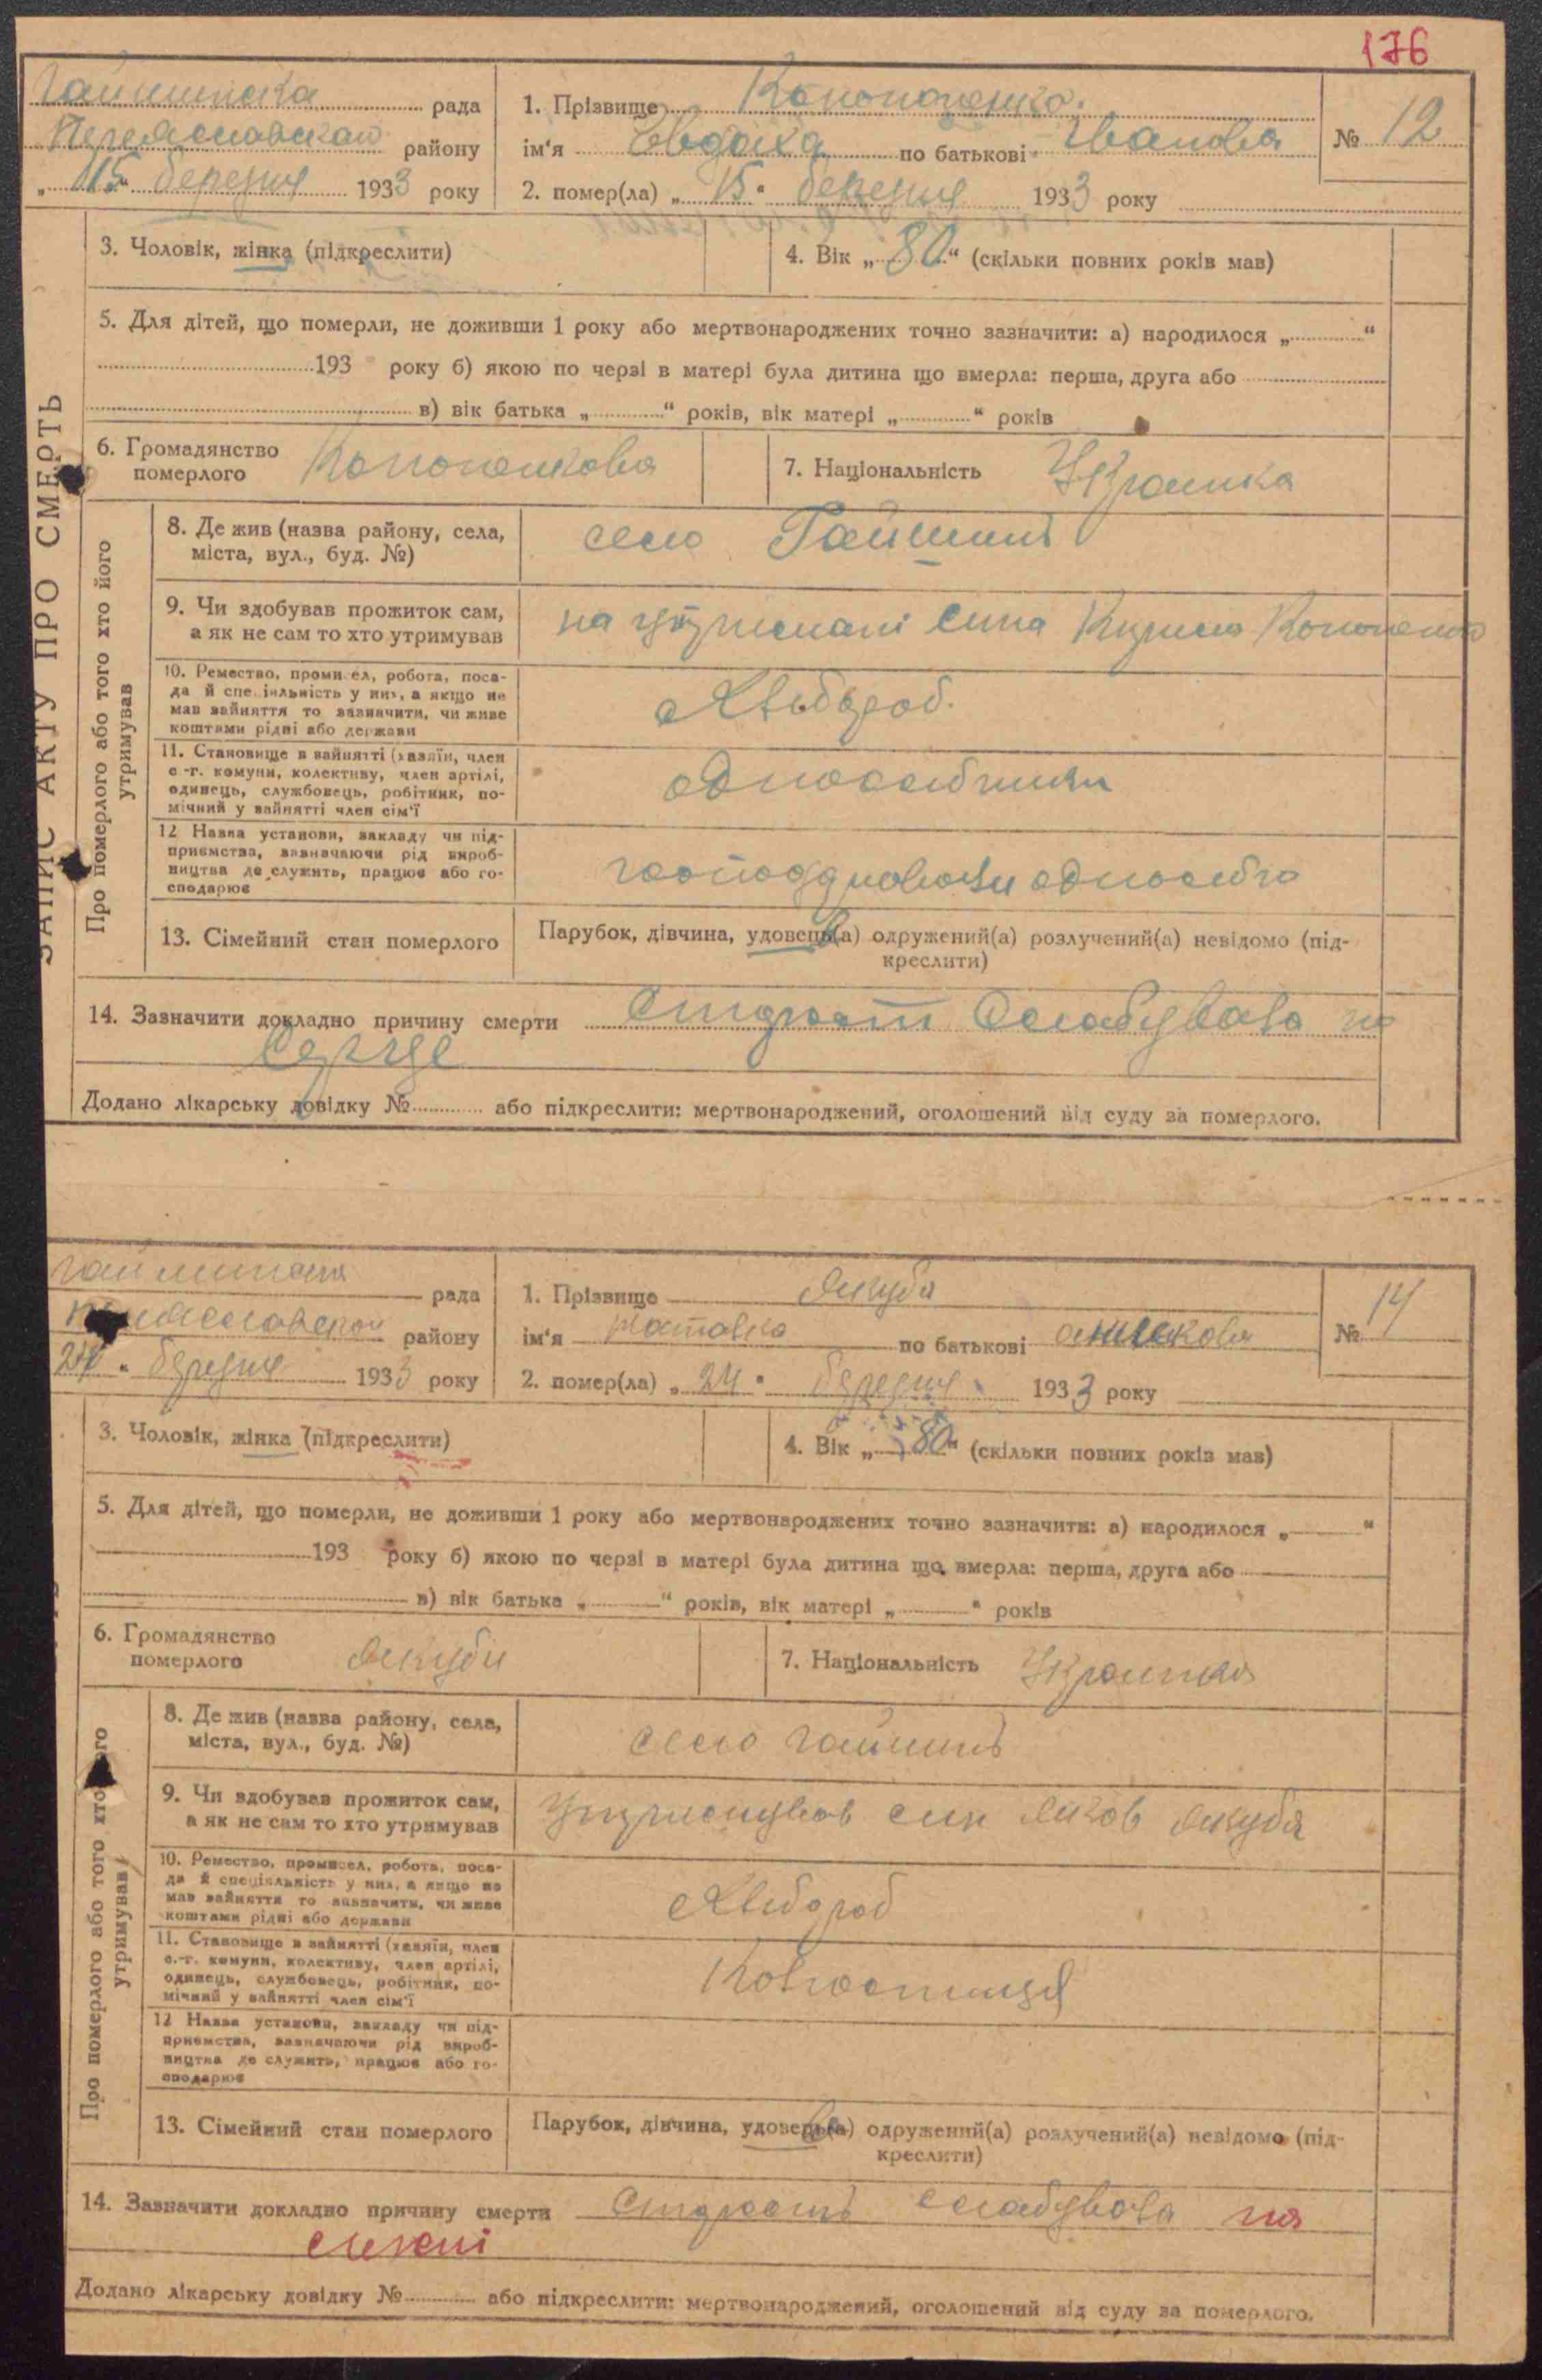 176
рада
району
„15“ березня 1933 року
1. Прізвище Кононоченко.
ім'я Євдоха по батькові Іванова
2. помер(ла) „15“ березня 1933 року
№ 12
3. Чоловік, жінка (підкреслити)
4. Вік „80“ (скільки повних років мав)
5. Для дітей, що померли, не доживши 1 року або мертвонароджених точно зазначити: а) народилося „ “
193 року б) якою по черзі в матері була дитина що вмерла: перша, друга або
в) вік батька „ “ років, вік матері „ “ років
6. Громадянство
померлого
7. Національність Українка
ЗАПИС АКТУ ПРО СМЕРТЬ
Про померлого або того хто його
утримував
8. Де жив (назва району, села,
міста, вул., буд. №)
село Гайшинь
9. Чи здобував прожиток сам,
а як не сам то хто утримував
на утримані сина Кирила Кононенко
10. Ремество, промисел, робота, поса-
да й спеціяльність у них, а якщо не
мав зайняття то зазначити, чи живе
коштами рідні або держави
Хлібороб.
11. Становище в зайнятті (хазяїн, член
с.-г. комуни, колективу, член артілі,
одинець, службовець, робітник, по-
мічний у зайнятті член сім'ї
12 Назва установи, закладу чи під-
приємства, зазначаючи рід вироб-
ництва де служить, працює або го-
сподарює
13. Сімейний стан померлого
Парубок, дівчина, удовець(а) одружений(а) розлучений(а) невідомо (під-
креслити)
14. Зазначити докладно причину смерти Старость Ослабувала на
серце
Додано лікарську довідку № або підкреслити: мертвонароджений, оголошений від суду за померлого.
рада
району
24 „ березня 1933 року
1. Прізвище Якуба
ім'я по батькові
2. помер(ла) „24“ березня 1933 року
№ 14
3. Чоловік, жінка (підкреслити)
4. Вік „80“ (скільки повних років мав)
5. Для дітей, що померли, не доживши 1 року або мертвонароджених точно зазначити: а) народилося „ “
193 року б) якою по черзі в матері була дитина що вмерла: перша, друга або
в) вік батька „ “ років, вік матері „ “ років
6. Громадянство
померлого
Якуби
7. Національність Українка
Про померлого або того хто його
утримував
8. Де жив (назва району, села,
міста, вул., буд. №)
село гайшинь
9. Чи здобував прожиток сам,
а як не сам то хто утримував
утримував син Яков Якуба
10. Ремество, промисел, робота, поса-
да й спеціяльність у них, а якщо не
мав зайняття то зазначити, чи живе
коштами рідні або держави
Хлібороб
11. Становище в зайнятті (хазяїн, член
с.-г. комуни, колективу, член артілі,
одинець, службовець, робітник, по-
мічний у зайнятті член сім'ї
12 Назва установи, закладу чи під-
приємства, зазначаючи рід вироб-
ництва де служить, працює або го-
сподарює
13. Сімейний стан померлого
Парубок, дівчина, удовець(а) одружений(а) розлучений(а) невідомо (під-
креслити)
14. Зазначити докладно причину смерти Старость слабувала на
Додано лікарську довідку № або підкреслити: мертвонароджений, оголошений від суду за померлого.